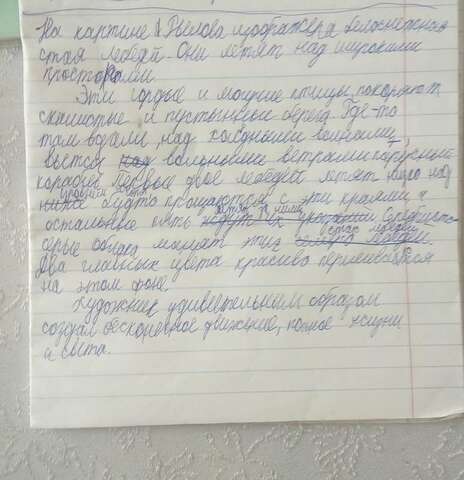 На картине А Рылова изображена белоснежная
стая лебедей. Они летят над широкими
просторами.
Эти гордые и мощные птицы покоряют
скалистые и пустынные берега. Где-то
там вдали, над холодными волнами,
вьется над вольными ветрами парусный
корабль. Первые двое лебедей летят низко над
будто прощаются с эти краями, а
остальные пять летят за ними
серые облака мешают этих
Два главных цвета красиво переливаются
на этом фоне.
Художник удивительным образом
создал бескорневное движение, полное жизни
и света.